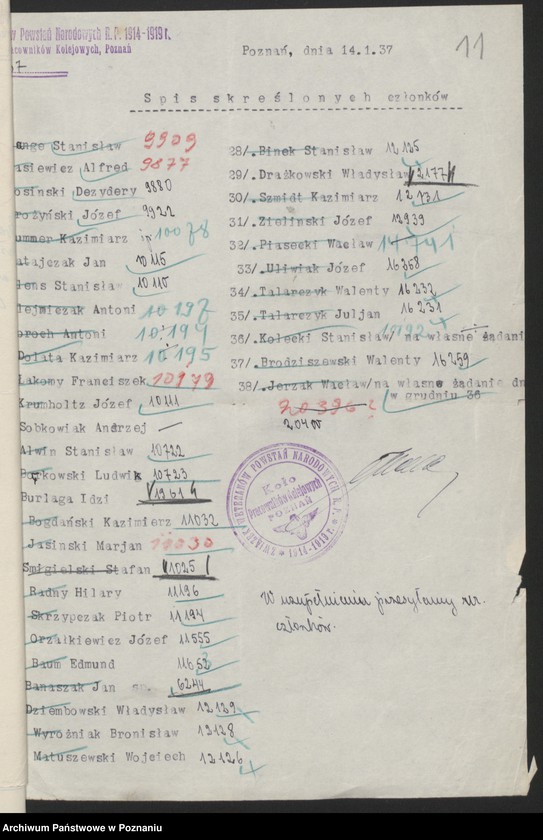 w Powstań Narodowych R.P. 1914-1919 r.
racowników Kolejowych, Poznań
Poznań, dnia 14.1.37
11
Spis skreślonych członków
ange Stanisław 9909
asiewicz Alfred 9877
osiński Dezydery 9880
rożyński Józef 9922
ummer Kazimierz 10078
atajczak Jan 10115
lens Stanisław 10110
lejniczak Antoni 10197
oroch Antoni 10194
Dolata Kazimierz 10195
Łakomy Franciszek 10179
Krumholtz Józef 10211
Sobkowiak Andrzej —
Alwin Stanisław 10722
kowski Ludwik 10723
Burlaga Idzi 1961
Bogdański Kazimierz 11032
Jasiński Marjan 11030
Śmigielski Stafan 1025
Radny Hilary 11196
Skrzypczak Piotr 11194
Orzałkiewicz Józef 11555
Baum Edmund 11652
Banaszak Jan 6244
Dziembowski Władysław 12129
Wyroźniak Bronisław 12128
Matuszewski Wojciech 12126
28/.Binek Stanisław 12125
29/.Drażkowski Władysław 2177
30/.Szmidt Kazimierz 12731
31/.Zieliński Józef 12939
32/.Piasecki Wacław 14741
33/.Uliwiak Józef 16358
34/.Talarczyk Walenty 16232
35/.Talarczyk Juljan 16231
36/.Kołecki Stanisław/ na własne żądani
37/.Brodziszewski Walenty 16259
38/.Jerzak Wacław/na własne żądanie dn
w grudniu 36
20396?
20400
ZWIĄZEK WETERANÓW POWSTAŃ NARODOWYCH R.P. 1914-1919
Koło
Pracowników Kolejowych
POZNAŃ
W uzupełnieniu przesyłamy nr.
członków.
Archiwum Państwowe w Poznaniu